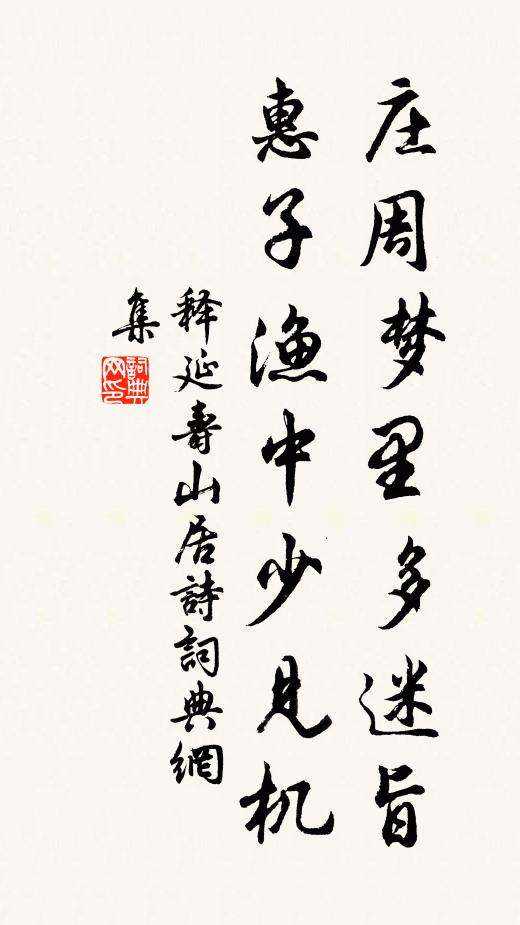 庄周梦里多迷旨
惠子渔中少见机
释延壽山居詩詞典網
集
詞典
网印